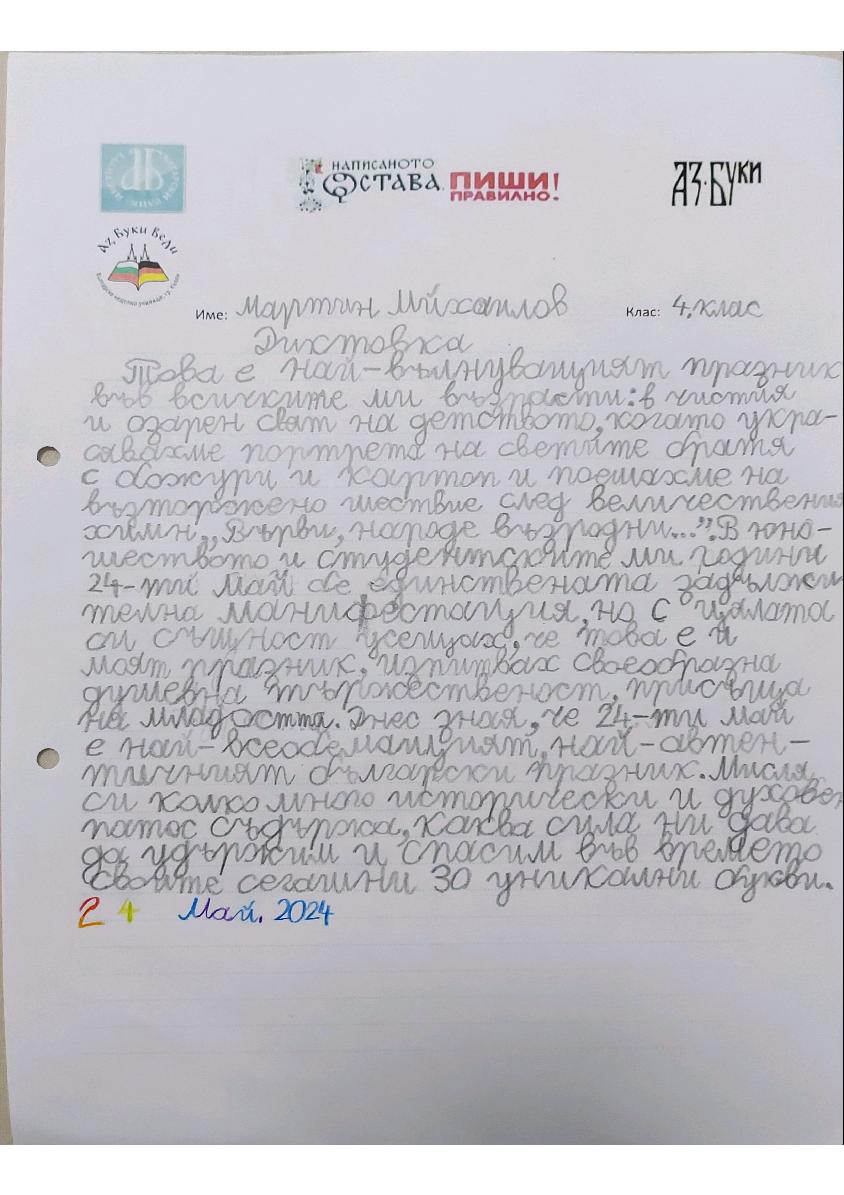 НАПИСАНОТО
ОСТАВА. ПИШИ
ПРАВИЛНО!
АЗ·БУКИ
Аз Буки Веди
Име: Мартин Мйхаилов Клас: 4. клас
Диктовка
Това е най-вълнуващият празник
във всичките ми възрасти: в чистия
и озарен свят на детството, когато укра-
сявахме портрета на светите братя
с божури и картоп и поемахме на
възторжено шествие след величествения
химн „Върви, народе възродни...". В юно-
шеството и студентските ми години
24-ти Май бе единствената задължи
телна манифестация, но с цялата
си същност усещах, че това е и
моят празник, изпитвах своеобразна
душевна тържественост, присъща
на младостта. Днес зная, че 24-ти май
е най-всеобемащият, най-автен-
тичният български празник. Мисля
си колко много исторически и духовен
патос съдържа, каква сила ни дава
да удържим и спасим във времето
своите сегашни 30 уникални букви.
24 Май. 2024